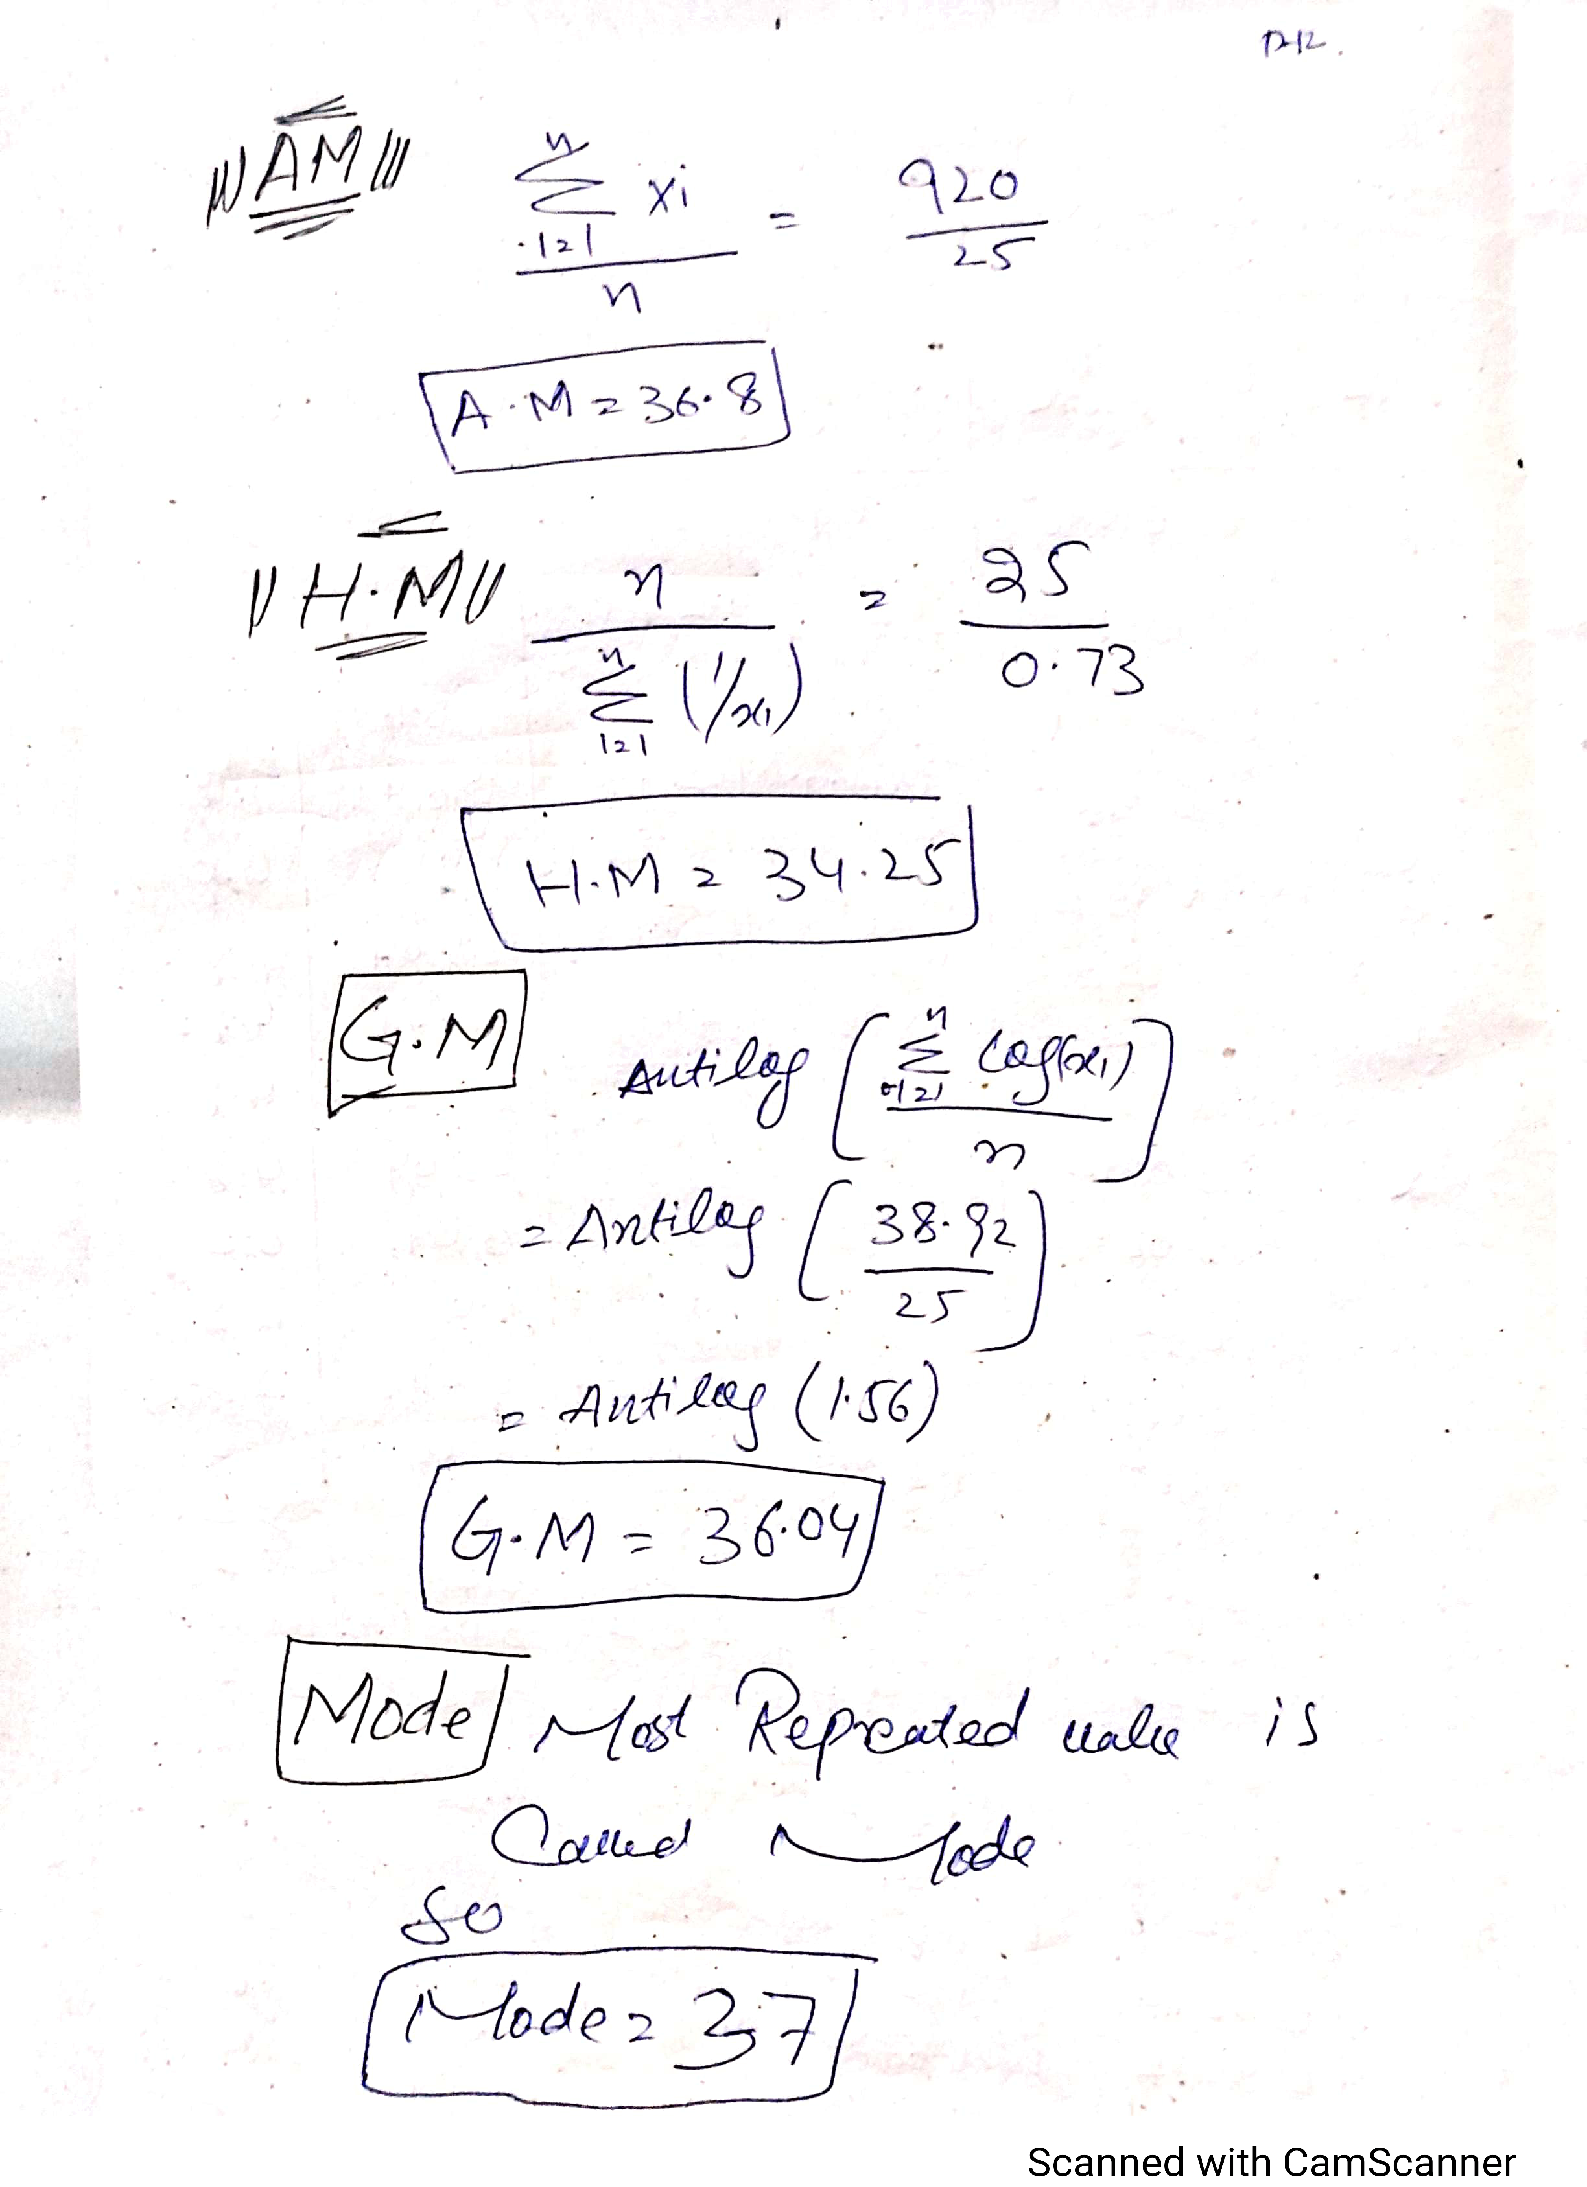 12-12.
AM
n
Σ xi = 920
i=1
n 25
A.M = 36.8
H.M n = 25
n
Σ (1/xi) 0.73
i=1
H.M = 34.25
G.M
Antilog [ n Σ i=1 log(xi) / n ]
= Antilog [ 38.92 / 25 ]
= Antilog (1.56)
G.M = 36.04
Mode Most Repreated value is
Called Mode
So
Mode = 37
Scanned with CamScanner